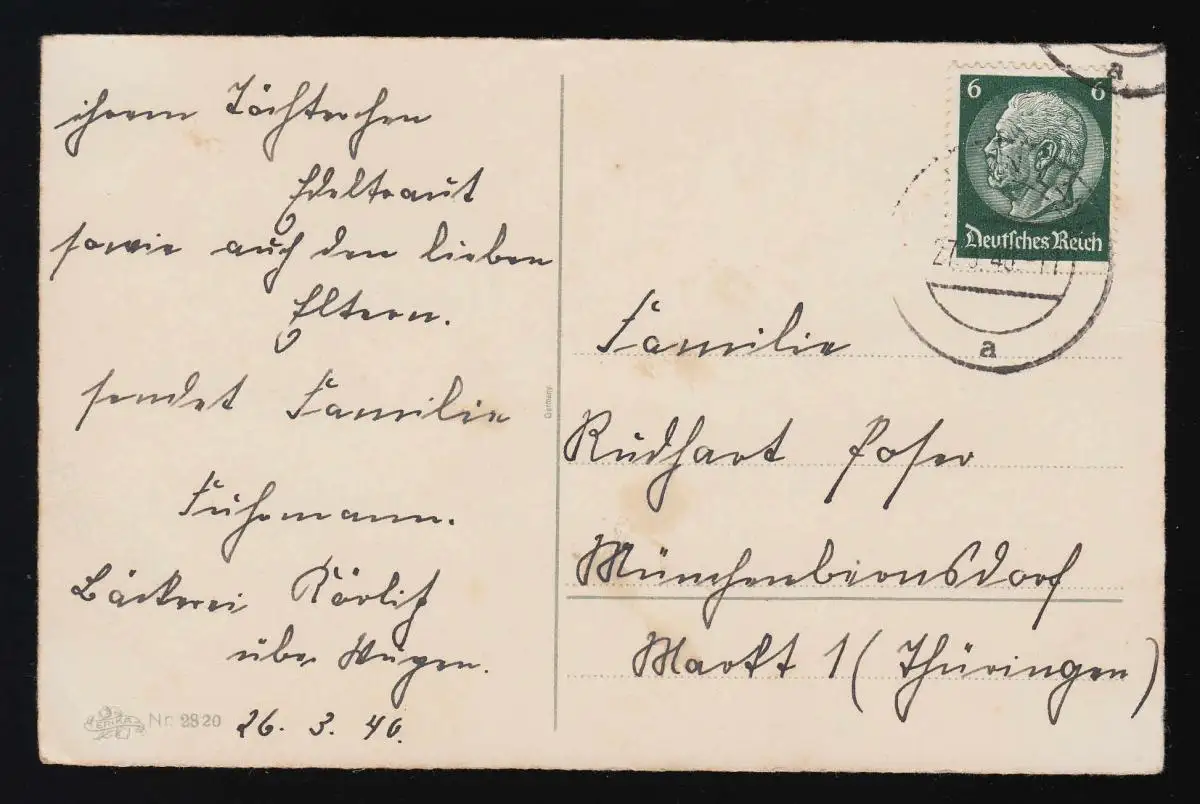 ihrem Töchterchen
Edeltraut
sowie auch den lieben
Eltern.
sendet Familie
Fuhrmann.
Bäckerei Körlitz
über Wurzen.
26. 3. 40.
ERIKA Nr. 2820
Germany
6 6
Deutsches Reich
27.3.40.-11
a
a
Familie
Rudhart Poser
Münchenbernsdorf
Markt 1 (Thüringen)